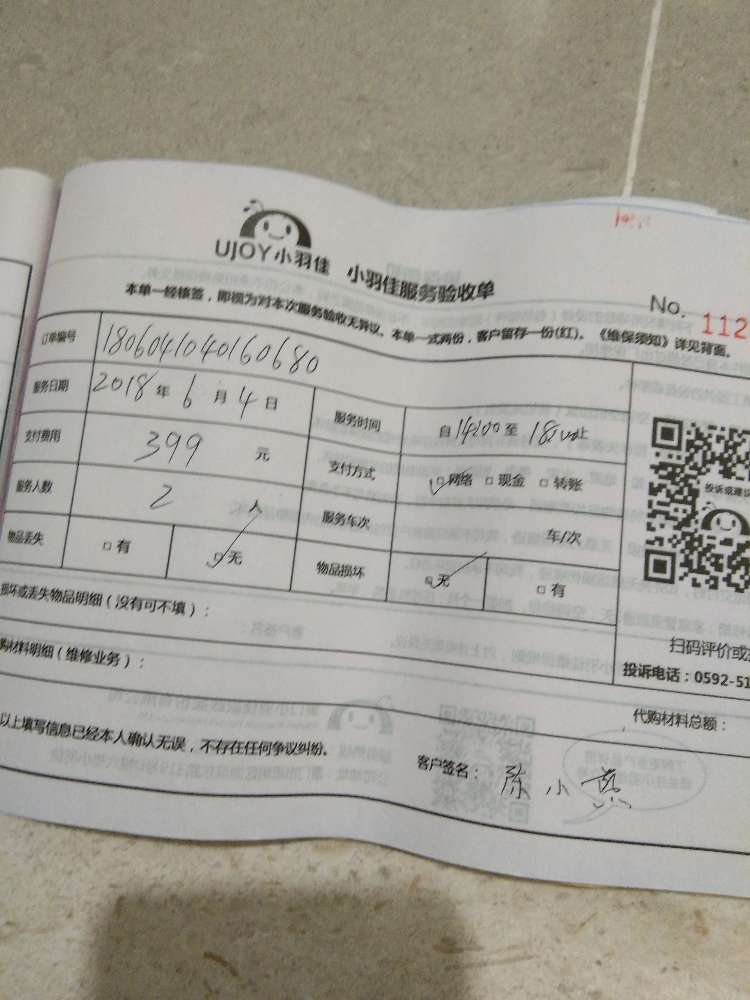 UJOY小羽佳 小羽佳服务验收单
No. 112
本单一经核签，即视为对本次服务验收无异议。本单一式两份，客户留存一份(红)。《维保须知》详见背面。
订单编号 1806041040160680
服务日期 2018 年 6 月 4 日 服务时间 自 14:00 至 18:00 止
支付费用 399 元 支付方式 ☑网络 □现金 □转账
服务人数 2 人 服务车次 车/次
物品丢失 □有 ☑无 物品损坏 ☑无 □有
损坏或丢失物品明细（没有可不填）：
购材料明细（维修业务）：
投诉或建议
扫码评价或投
投诉电话：0592-51
代购材料总额：
以上填写信息已经本人确认无误，不存在任何争议纠纷。
客户签名： 陈小燕